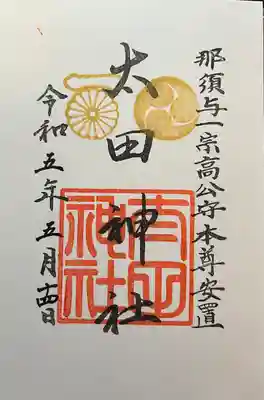 那須与一宗高公守本尊安置
太田神社
令和五年五月十四日